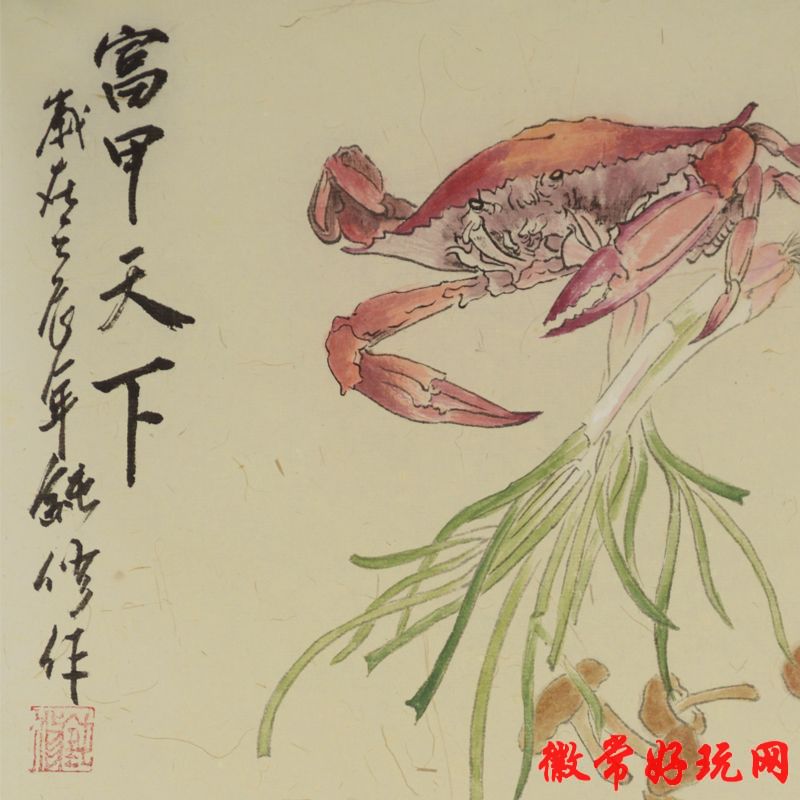 富甲天下
歲在壬辰年鈍修作
徽常好玩网